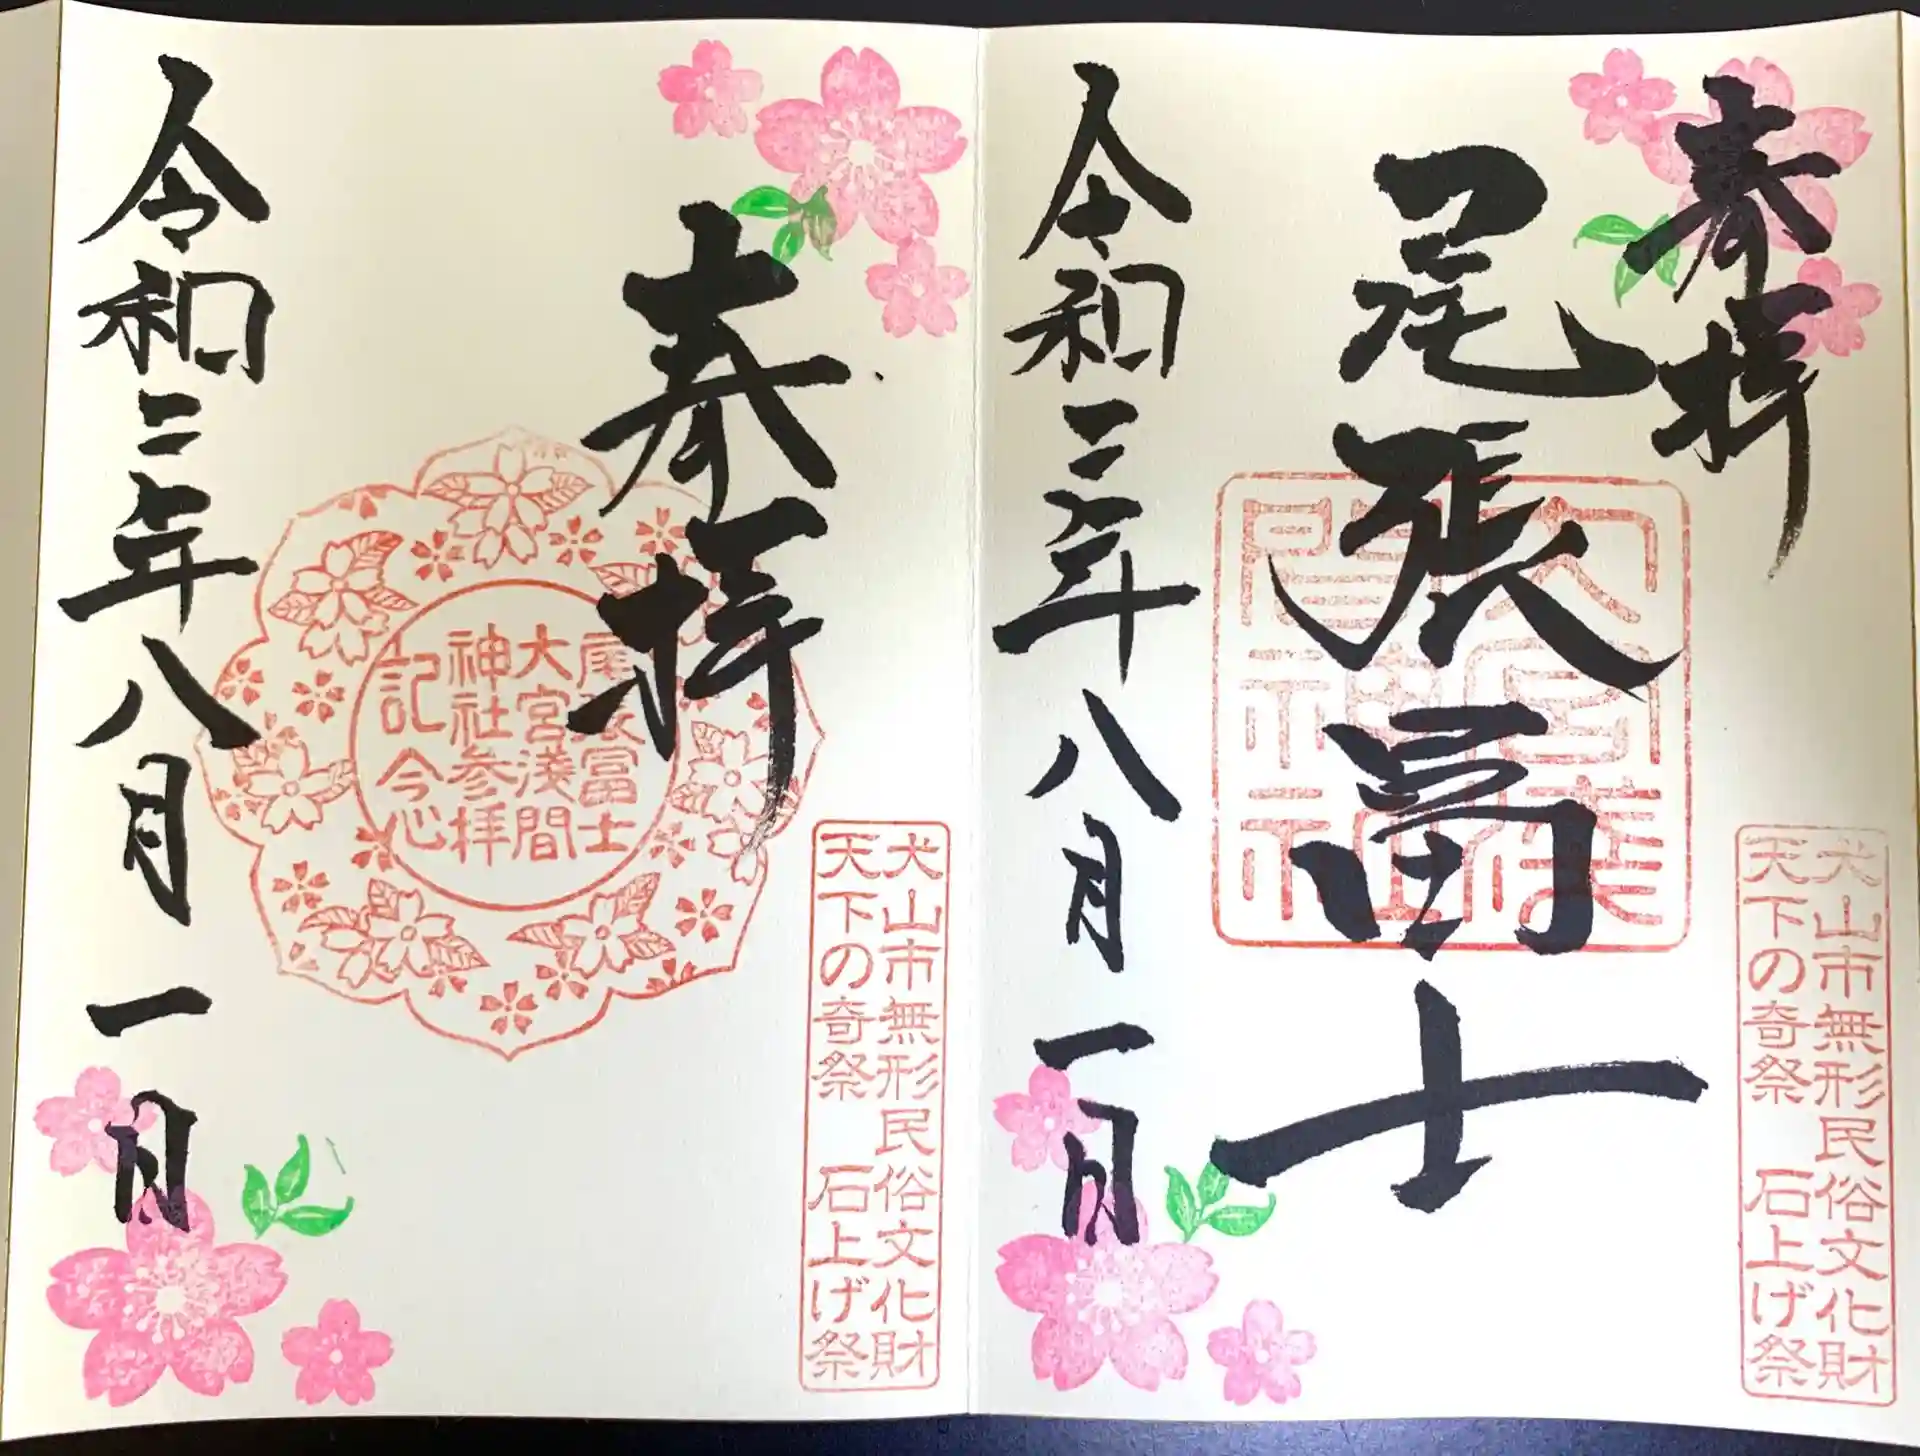 奉拝
犬山市無形民俗文化財
天下の奇祭 石上げ祭
尾張冨士
大宮淺
間神社
令和二年八月一日
奉拝
犬山市無形民俗文化財
天下の奇祭 石上げ祭
尾張冨士
大宮淺間
神社参拝
記念
令和二年八月一日